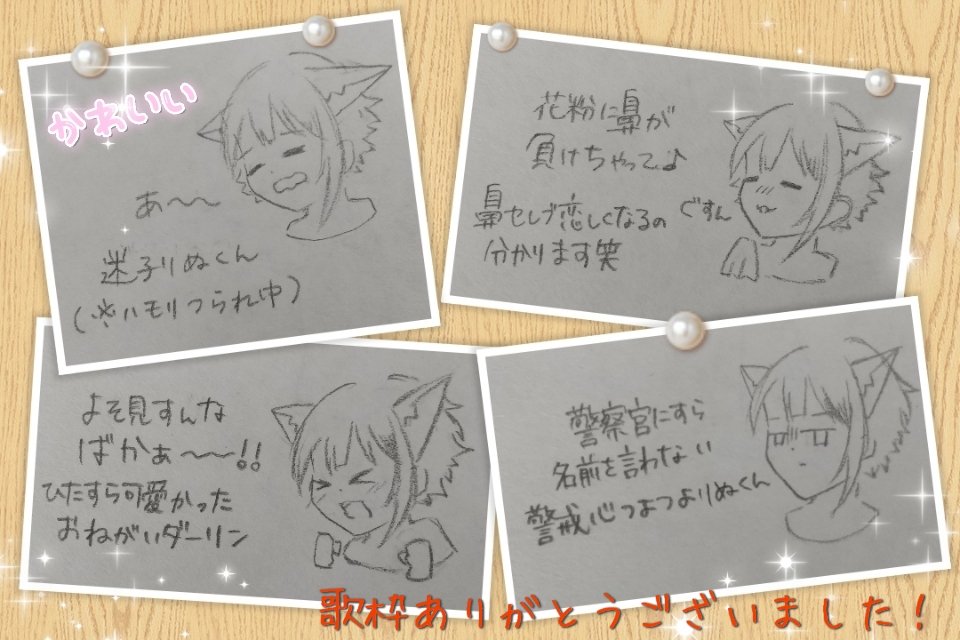 かわいい
あ〜〜
迷子りぬくん
(※ハモリつられ中)
花粉に鼻が
負けちゃって♪
鼻セレブ恋しくなるの
分かります笑
ぐすん
よそ見すんな
ばかぁ〜〜!!
ひたすら可愛かった
おねがいダーリン
警察官にすら
名前を言わない
警戒心つよつよりぬくん
歌枠ありがとうございました!